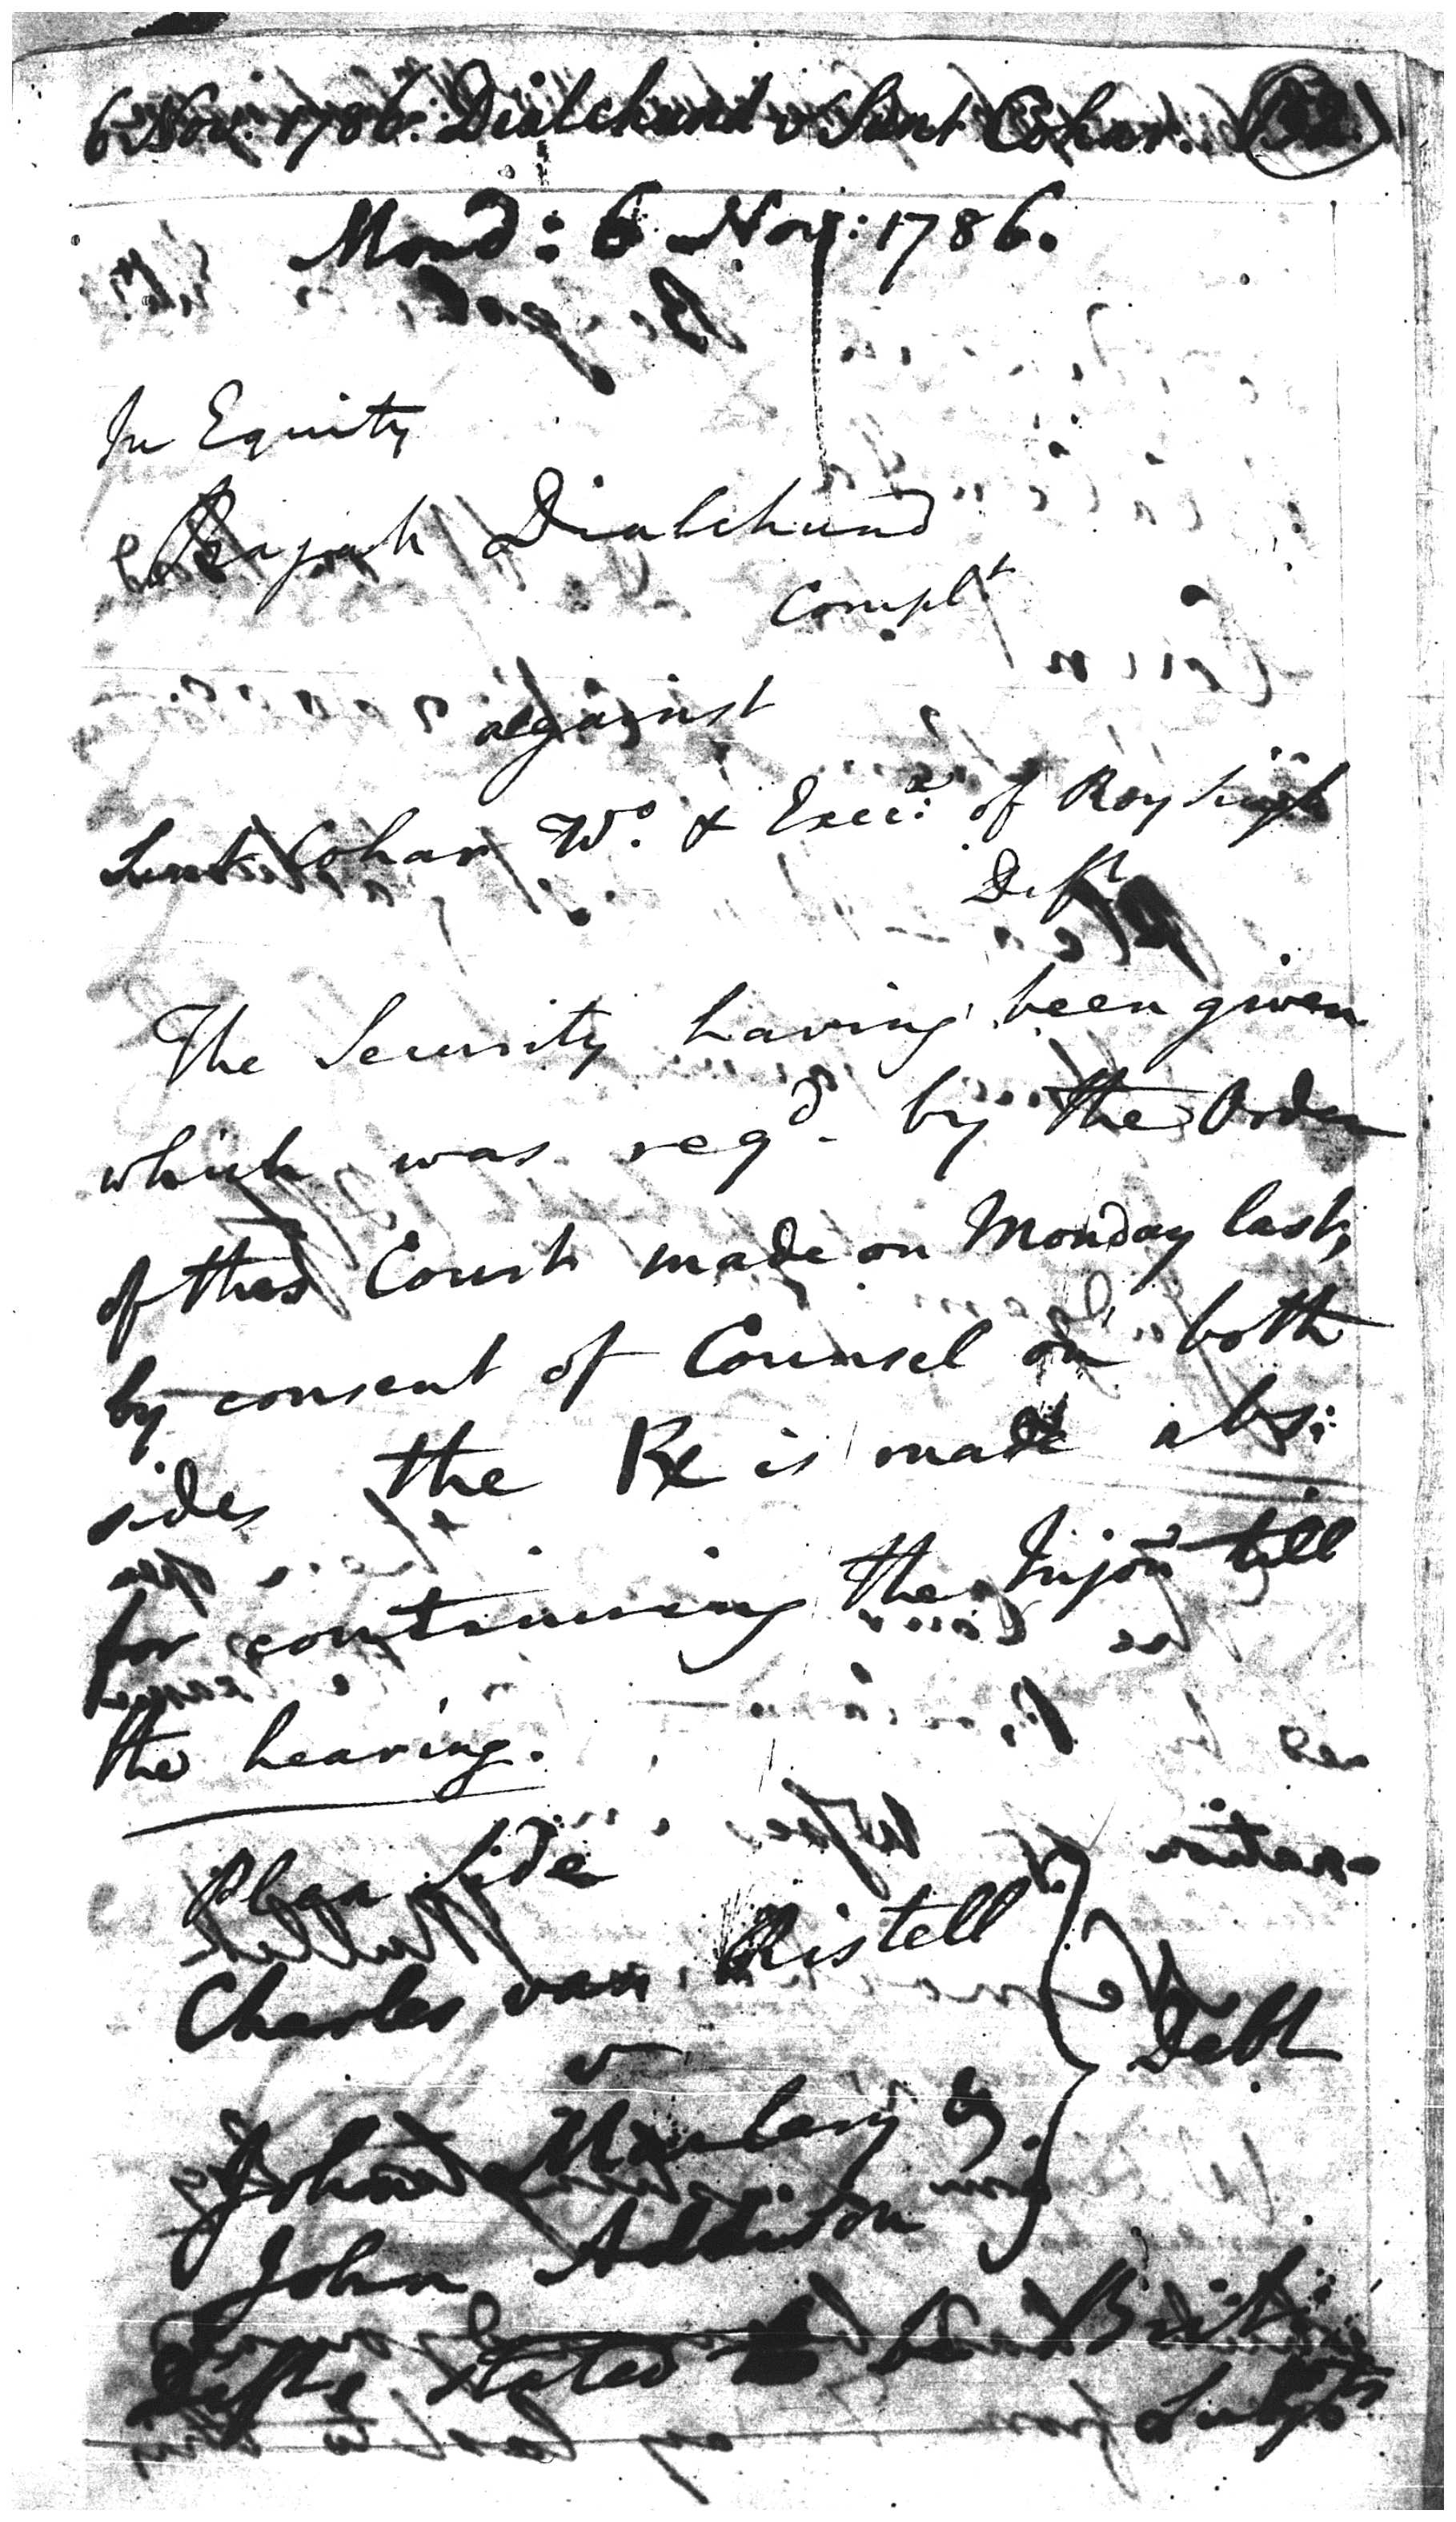 6 Nov: 1786. Dialchund v Sunt Cohar.
Mond: 6 Nov: 1786.
In Equity
Rajah Dialchund
Complt
against
Sunt Cohar Wo. & Execx. of Roy Singh
Deft
The Security having been given
which was reqd. by the Order
of this Court made on Monday last,
by consent of Counsel on both
sides the Re is made abs:
for continuing the Injon till
the hearing.
Plea Side
Charles van Ristell
v
John Macleary &
John Addison
Debt
Defts stated to be Brit:
Subjts